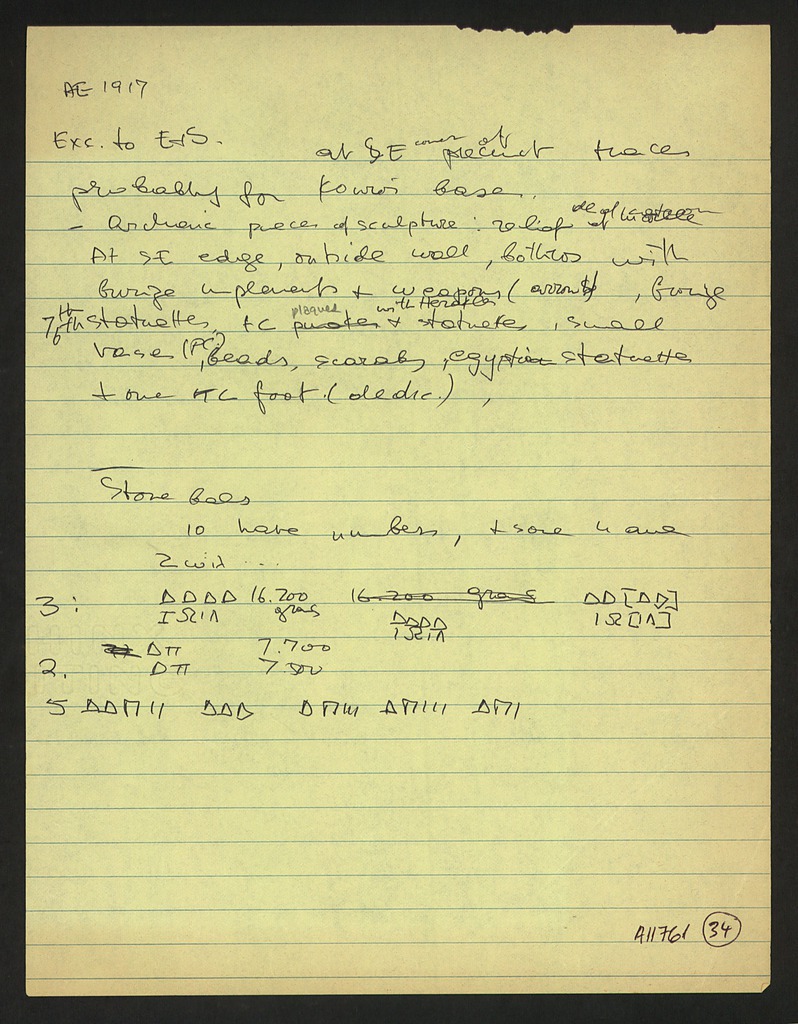 AE 1917
Exc. to E+S. at SE corner of precinct traces
probably for Kouros base.
- Archaic pieces of sculpture: relief
At SE edge, outside wall, bothros with
bronze implements + weapons (arrows), bronze
7th statuettes, tc plaques with Herakles + statuetes, small
6th vases (PC?), beads, scarabs, egyptian statuettes
+ one TC foot. (dedic.),
Stone bals
10 have numbers, + some have
2 with ...
3: ΔΔΔΔ 16.200 16.200 gras ΔΔ[ΔΔ]
ΙΣΩΙΛ gras ΔΔΔΔ ΙΩ[ΙΛ]
ΔΠ 7.700
2. ΔΠ 7.500
5 ΔΔΠΙΙ ΔΔΔ ΔΠΙΙΙ ΔΠΙΙΙ ΔΠΙ
A11761 34